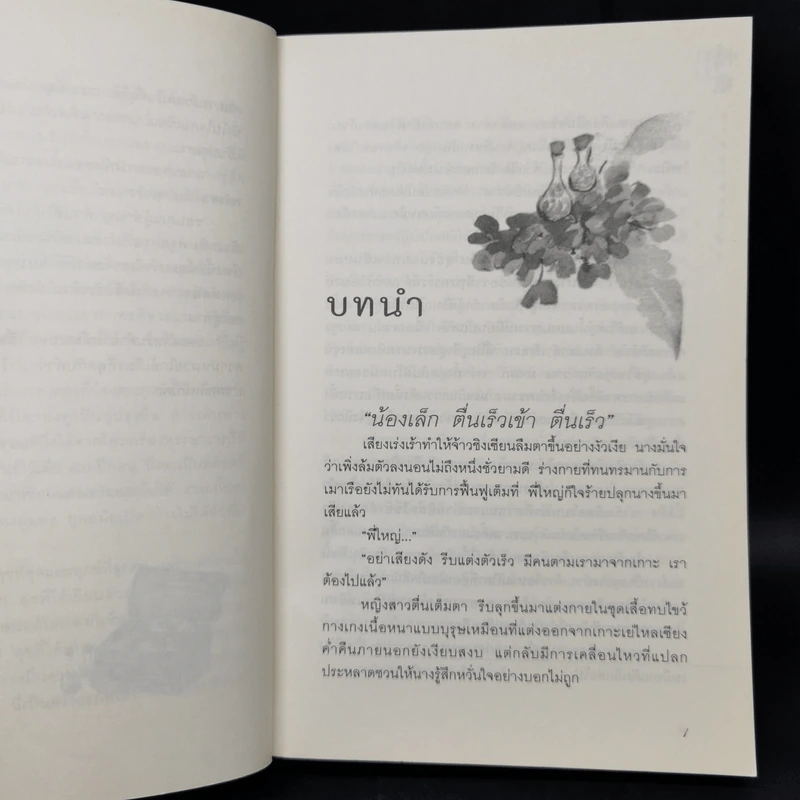 บทนำ
“น้องเล็ก ตื่นเร็วเข้า ตื่นเร็ว”
เสียงเร่งเร้าทำให้จ้าวซิงเซียนลืมตาขึ้นอย่างงัวเงีย นางมั่นใจ
ว่าเพิ่งล้มตัวลงนอนไม่ถึงหนึ่งชั่วยามดี ร่างกายที่ทนทรมานกับการ
เมาเรือยังไม่ทันได้รับการฟื้นฟูเต็มที่ พี่ใหญ่ก็ใจร้ายปลุกนางขึ้นมา
เสียแล้ว
“พี่ใหญ่...”
“อย่าเสียงดัง รีบแต่งตัวเร็ว มีคนตามเรามาจากเกาะ เรา
ต้องไปแล้ว”
หญิงสาวตื่นเต็มตา รีบลุกขึ้นมาแต่งกายในชุดเสื้อทบไขว้
กางเกงเนื้อหนาแบบบุรุษเหมือนที่แต่งออกจากเกาะเย่ไหลเซียง
ค่ำคืนภายนอกยังเงียบสงบ แต่กลับมีการเคลื่อนไหวที่แปลก
ประหลาดชวนให้นางรู้สึกหวั่นใจอย่างบอกไม่ถูก